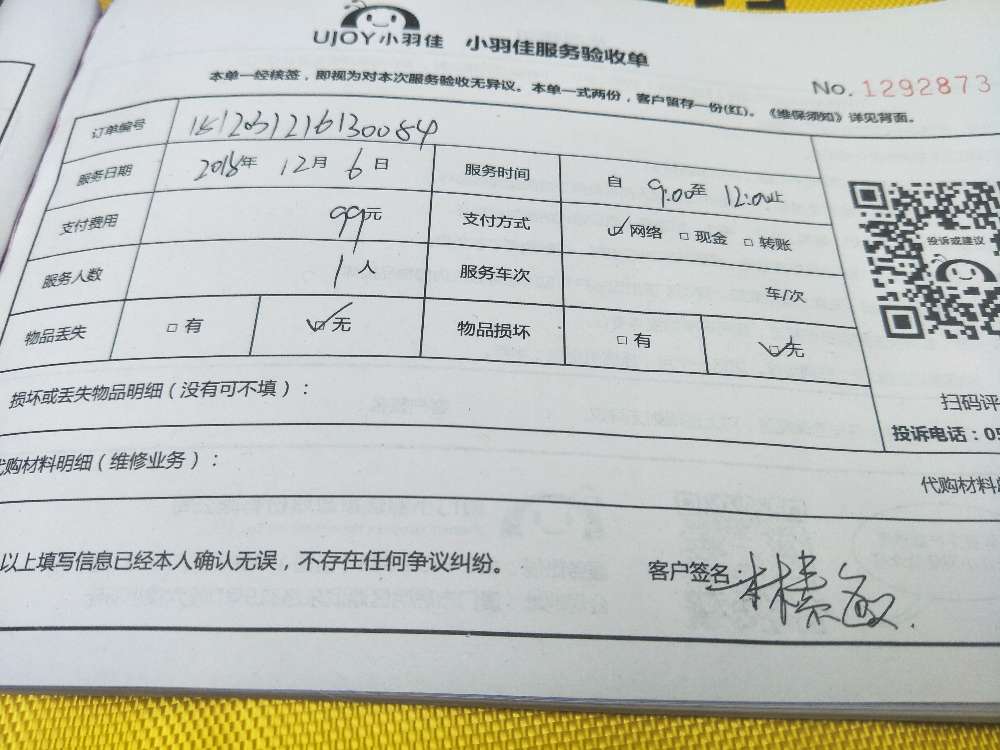 UJOY小羽佳 小羽佳服务验收单
本单一经核签，即视为对本次服务验收无异议。本单一式两份，客户留存一份(红)。《维保须知》详见背面。
No.1292873
订单编号
服务日期 2018年 12月 6日 服务时间 自 9:00至 12:00止
支付费用 99元 支付方式 ☑网络 □现金 □转账
服务人数 1人 服务车次 车/次
物品丢失 □有 ☑无 物品损坏 □有 ☑无
投诉或建议
损坏或丢失物品明细（没有可不填）：
扫码评
投诉电话：05
代购材料明细（维修业务）：
代购材料
以上填写信息已经本人确认无误，不存在任何争议纠纷。
客户签名：